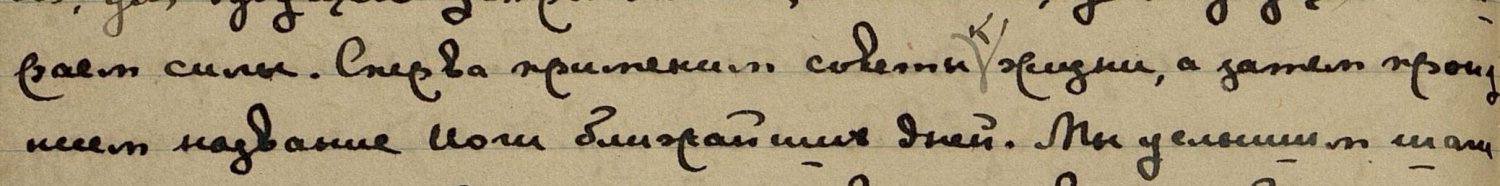 раем силы. Сперва применим советы к жизни, а затем произ
несем название Йоги ближайших дней. Мы услышим шаги